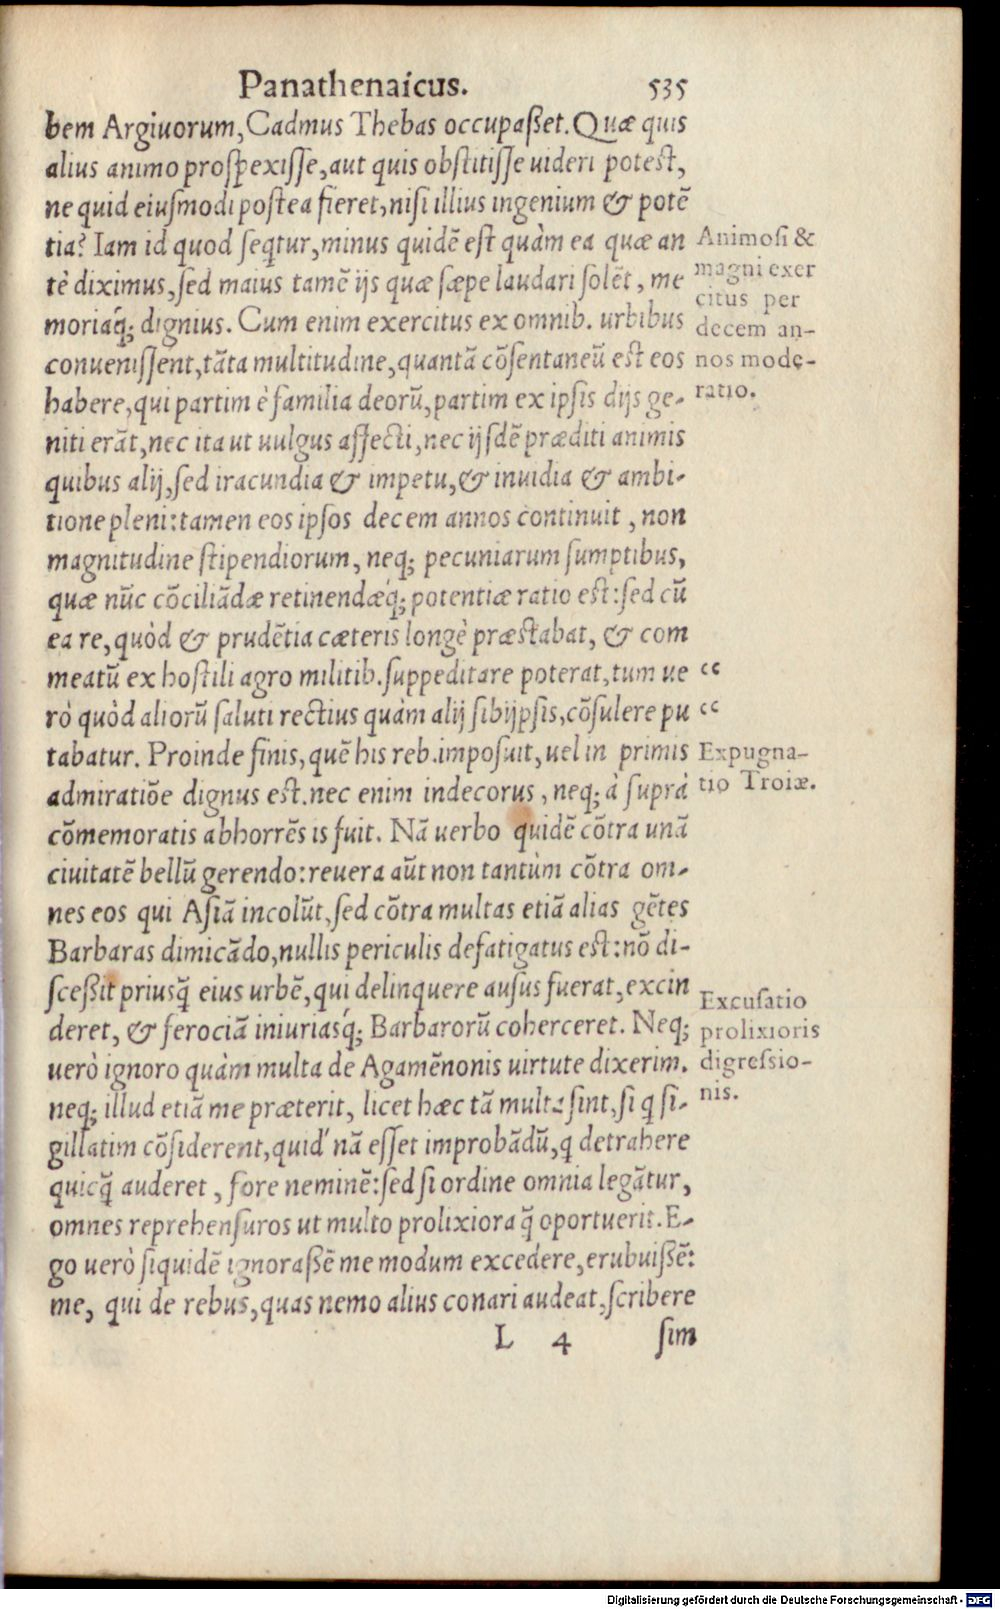 Panathenaicus. 535
bem Argiuorum, Cadmus Thebas occupaßet. Quæ quis
alius animo proſpexiſſe, aut quis obſtitiſſe uideri poteſt,
ne quid eiuſmodi poſtea fieret, niſi illius ingenium & potẽ
tia? Iam id quod ſeqtur, minus quidẽ eſt quàm ea quæ an
tè diximus, ſed maius tamẽ ijs quæ ſæpe laudari ſolẽt, me
moriaq́; dignius. Cum enim exercitus ex omnib. urbibus
conueniſſent, tãta multitudine, quantã cõſentaneũ eſt eos
habere, qui partim è familia deorũ, partim ex ipſis dijs ge-
niti erãt, nec ita ut uulgus affecti, nec ijſdẽ præditi animis
quibus alij, ſed iracundia & impetu, & inuidia & ambi-
tione pleni: tamen eos ipſos decem annos continuit, non
magnitudine ſtipendiorum, neq; pecuniarum ſumptibus,
quæ nũc cõciliãdæ retinendæq́; potentiæ ratio eſt: ſed cũ
ea re, quòd & prudẽtia cæteris longè præſtabat, & com
meatũ ex hoſtili agro militib. ſuppeditare poterat, tum ue
rò quòd aliorũ ſaluti rectius quàm alij ſibijpſis, cõſulere pu
tabatur. Proinde finis, quẽ his reb. impoſuit, uel in primis
admiratiõe dignus eſt. nec enim indecorus, neq; à ſuprà
cõmemoratis abhorrẽs is fuit. Nã uerbo quidẽ cõtra unã
ciuitatẽ bellũ gerendo: reuera aũt non tantùm cõtra om-
nes eos qui Aſiã incolũt, ſed cõtra multas etiã alias gẽtes
Barbaras dimicãdo, nullis periculis defatigatus eſt: nõ di-
ſceßit priusq̃ eius urbẽ, qui delinquere auſus fuerat, excin
deret, & ferociã iniuriasq́; Barbarorũ coherceret. Neq;
uerò ignoro quàm multa de Agamẽnonis uirtute dixerim.
neq; illud etiã me præterit, licet hæc tã multa ſint, ſi q ſi-
gillatim cõſiderent, quid nã eſſet improbãdũ, q detrahere
quicq̃ auderet, fore neminẽ: ſed ſi ordine omnia legãtur,
omnes reprehenſuros ut multo prolixiora q̃ oportuerit. E-
go uerò ſiquidẽ ignoraßẽ me modum excedere, erubuißẽ:
me, qui de rebus, quas nemo alius conari audeat, ſcribere
L 4 ſim
Animoſi &
magni exer
citus per
decem an-
nos mode-
ratio.
“
“
Expugna-
tio Troiæ.
Excuſatio
prolixioris
digreſsio-
nis.
Digitalisierung gefördert durch die Deutsche Forschungsgemeinschaft - DFG